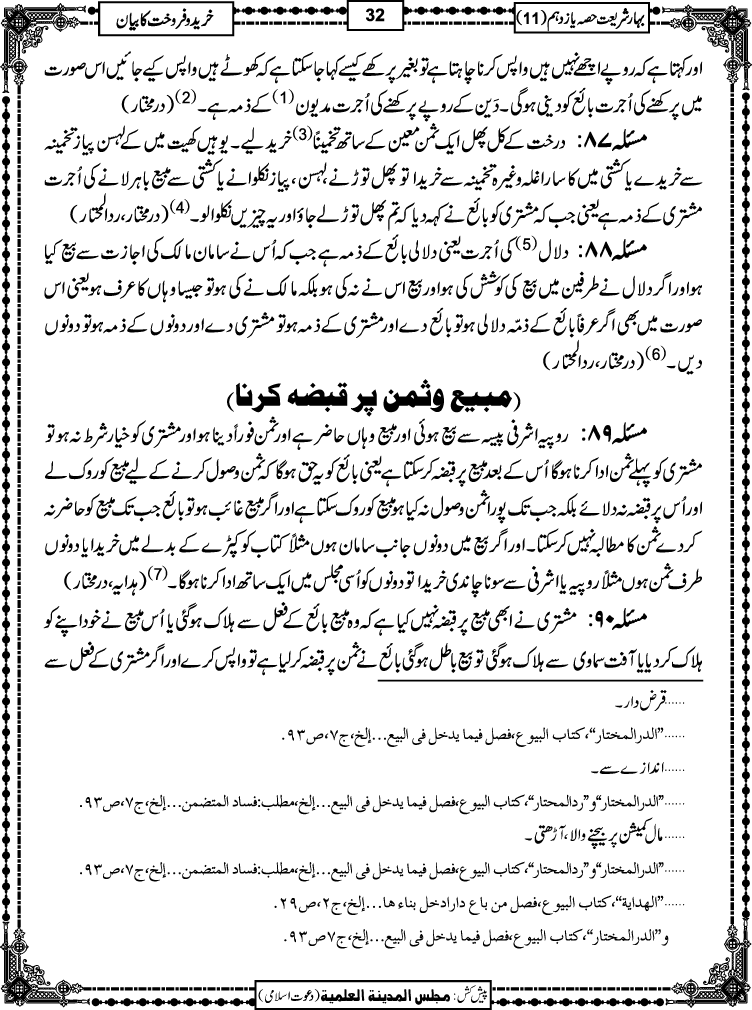 بہارِ شریعت حصہ یازدہم (11)
32
خرید و فروخت کا بیان
اور کہتا ہے کہ روپے اچھے نہیں ہیں واپس کرنا چاہتا ہے تو بغیر پرکھے کیسے کہا جا سکتا ہے کہ کھوٹے ہیں واپس کیے جائیں اس صورت
میں پرکھنے کی اُجرت بائع کو دینی ہوگی۔ دَین کے روپے پرکھنے کی اُجرت مدیون (1) کے ذمہ ہے۔ (2) (درمختار)
مسئلہ ۸۷: درخت کے کل پھل ایک ثمن معین کے ساتھ تخمیناً (3) خرید لیے۔ یوہیں کھیت میں کے لہسن پیاز تخمینہ
سے خریدے یا کشتی میں کا سارا غلہ وغیرہ تخمینہ سے خریدا تو پھل توڑنے، لہسن، پیاز نکلوانے یا کشتی سے مبیع باہر لانے کی اُجرت
مشتری کے ذمہ ہے یعنی جب کہ مشتری کو بائع نے کہہ دیا کہ تم پھل توڑ لے جاؤ اور یہ چیزیں نکلوالو۔ (4) (درمختار، ردالمحتار)
مسئلہ ۸۸: دلال (5) کی اُجرت یعنی دلالی بائع کے ذمہ ہے جب کہ اُس نے سامان مالک کی اجازت سے بیع کیا
ہو اور اگر دلال نے طرفین میں بیع کی کوشش کی ہو اور بیع اس نے نہ کی ہو بلکہ مالک نے کی ہو تو جیسا وہاں کا عرف ہو یعنی اس
صورت میں بھی اگر عرفاً بائع کے ذمّہ دلالی ہو تو بائع دے اور مشتری کے ذمہ ہو تو مشتری دے اور دونوں کے ذمہ ہو تو دونوں
دیں۔ (6) (درمختار، ردالمحتار)
(مبیع و ثمن پر قبضہ کرنا)
مسئلہ ۸۹: روپیہ اشرفی پیسہ سے بیع ہوئی اور مبیع وہاں حاضر ہے اور ثمن فوراً دینا ہو اور مشتری کو خیار شرط نہ ہو تو
مشتری کو پہلے ثمن ادا کرنا ہوگا اُس کے بعد مبیع پر قبضہ کر سکتا ہے یعنی بائع کو یہ حق ہوگا کہ ثمن وصول کرنے کے لیے مبیع کو روک لے
اور اُس پر قبضہ نہ دلائے بلکہ جب تک پورا ثمن وصول نہ کیا ہو مبیع کو روک سکتا ہے اور اگر مبیع غائب ہو تو بائع جب تک مبیع کو حاضر نہ
کر دے ثمن کا مطالبہ نہیں کر سکتا۔ اور اگر بیع میں دونوں جانب سامان ہوں مثلاً کتاب کو کپڑے کے بدلے میں خریدا یا دونوں
طرف ثمن ہوں مثلاً روپیہ یا اشرفی سے سونا چاندی خریدا تو دونوں کو اُسی مجلس میں ایک ساتھ ادا کرنا ہوگا۔ (7) (ہدایہ، درمختار)
مسئلہ ۹۰: مشتری نے ابھی مبیع پر قبضہ نہیں کیا ہے کہ وہ مبیع بائع کے فعل سے ہلاک ہوگئی یا اُس مبیع نے خود اپنے کو
ہلاک کر دیا یا آفت سماوی سے ہلاک ہوگئی تو بیع باطل ہوگئی بائع نے ثمن پر قبضہ کر لیا ہے تو واپس کرے اور اگر مشتری کے فعل سے
......قرض دار۔
......"الدرالمختار"، کتاب البیوع، فصل فیما یدخل فی البیع...إلخ، ج۷، ص۹۳.
......اندازے سے۔
......"الدرالمختار" و "ردالمحتار"، کتاب البیوع، فصل فیما یدخل فی البیع...إلخ، مطلب: فساد المتضمن...إلخ، ج۷، ص۹۳.
......مال کمیشن پر بیچنے والا، آڑھتی۔
......"الدرالمختار" و "ردالمحتار"، کتاب البیوع، فصل فیما یدخل فی البیع...إلخ، مطلب: فساد المتضمن...إلخ، ج۷، ص۹۳.
......"الھدایة"، کتاب البیوع، فصل من باع دارادخل بناء ها...إلخ، ج۲، ص۲۹.
و "الدرالمختار"، کتاب البیوع، فصل فیما یدخل فی البیع...إلخ، ج۷ ص۹۳.
پیش کش: مجلس المدینة العلمیة (دعوتِ اسلامی)